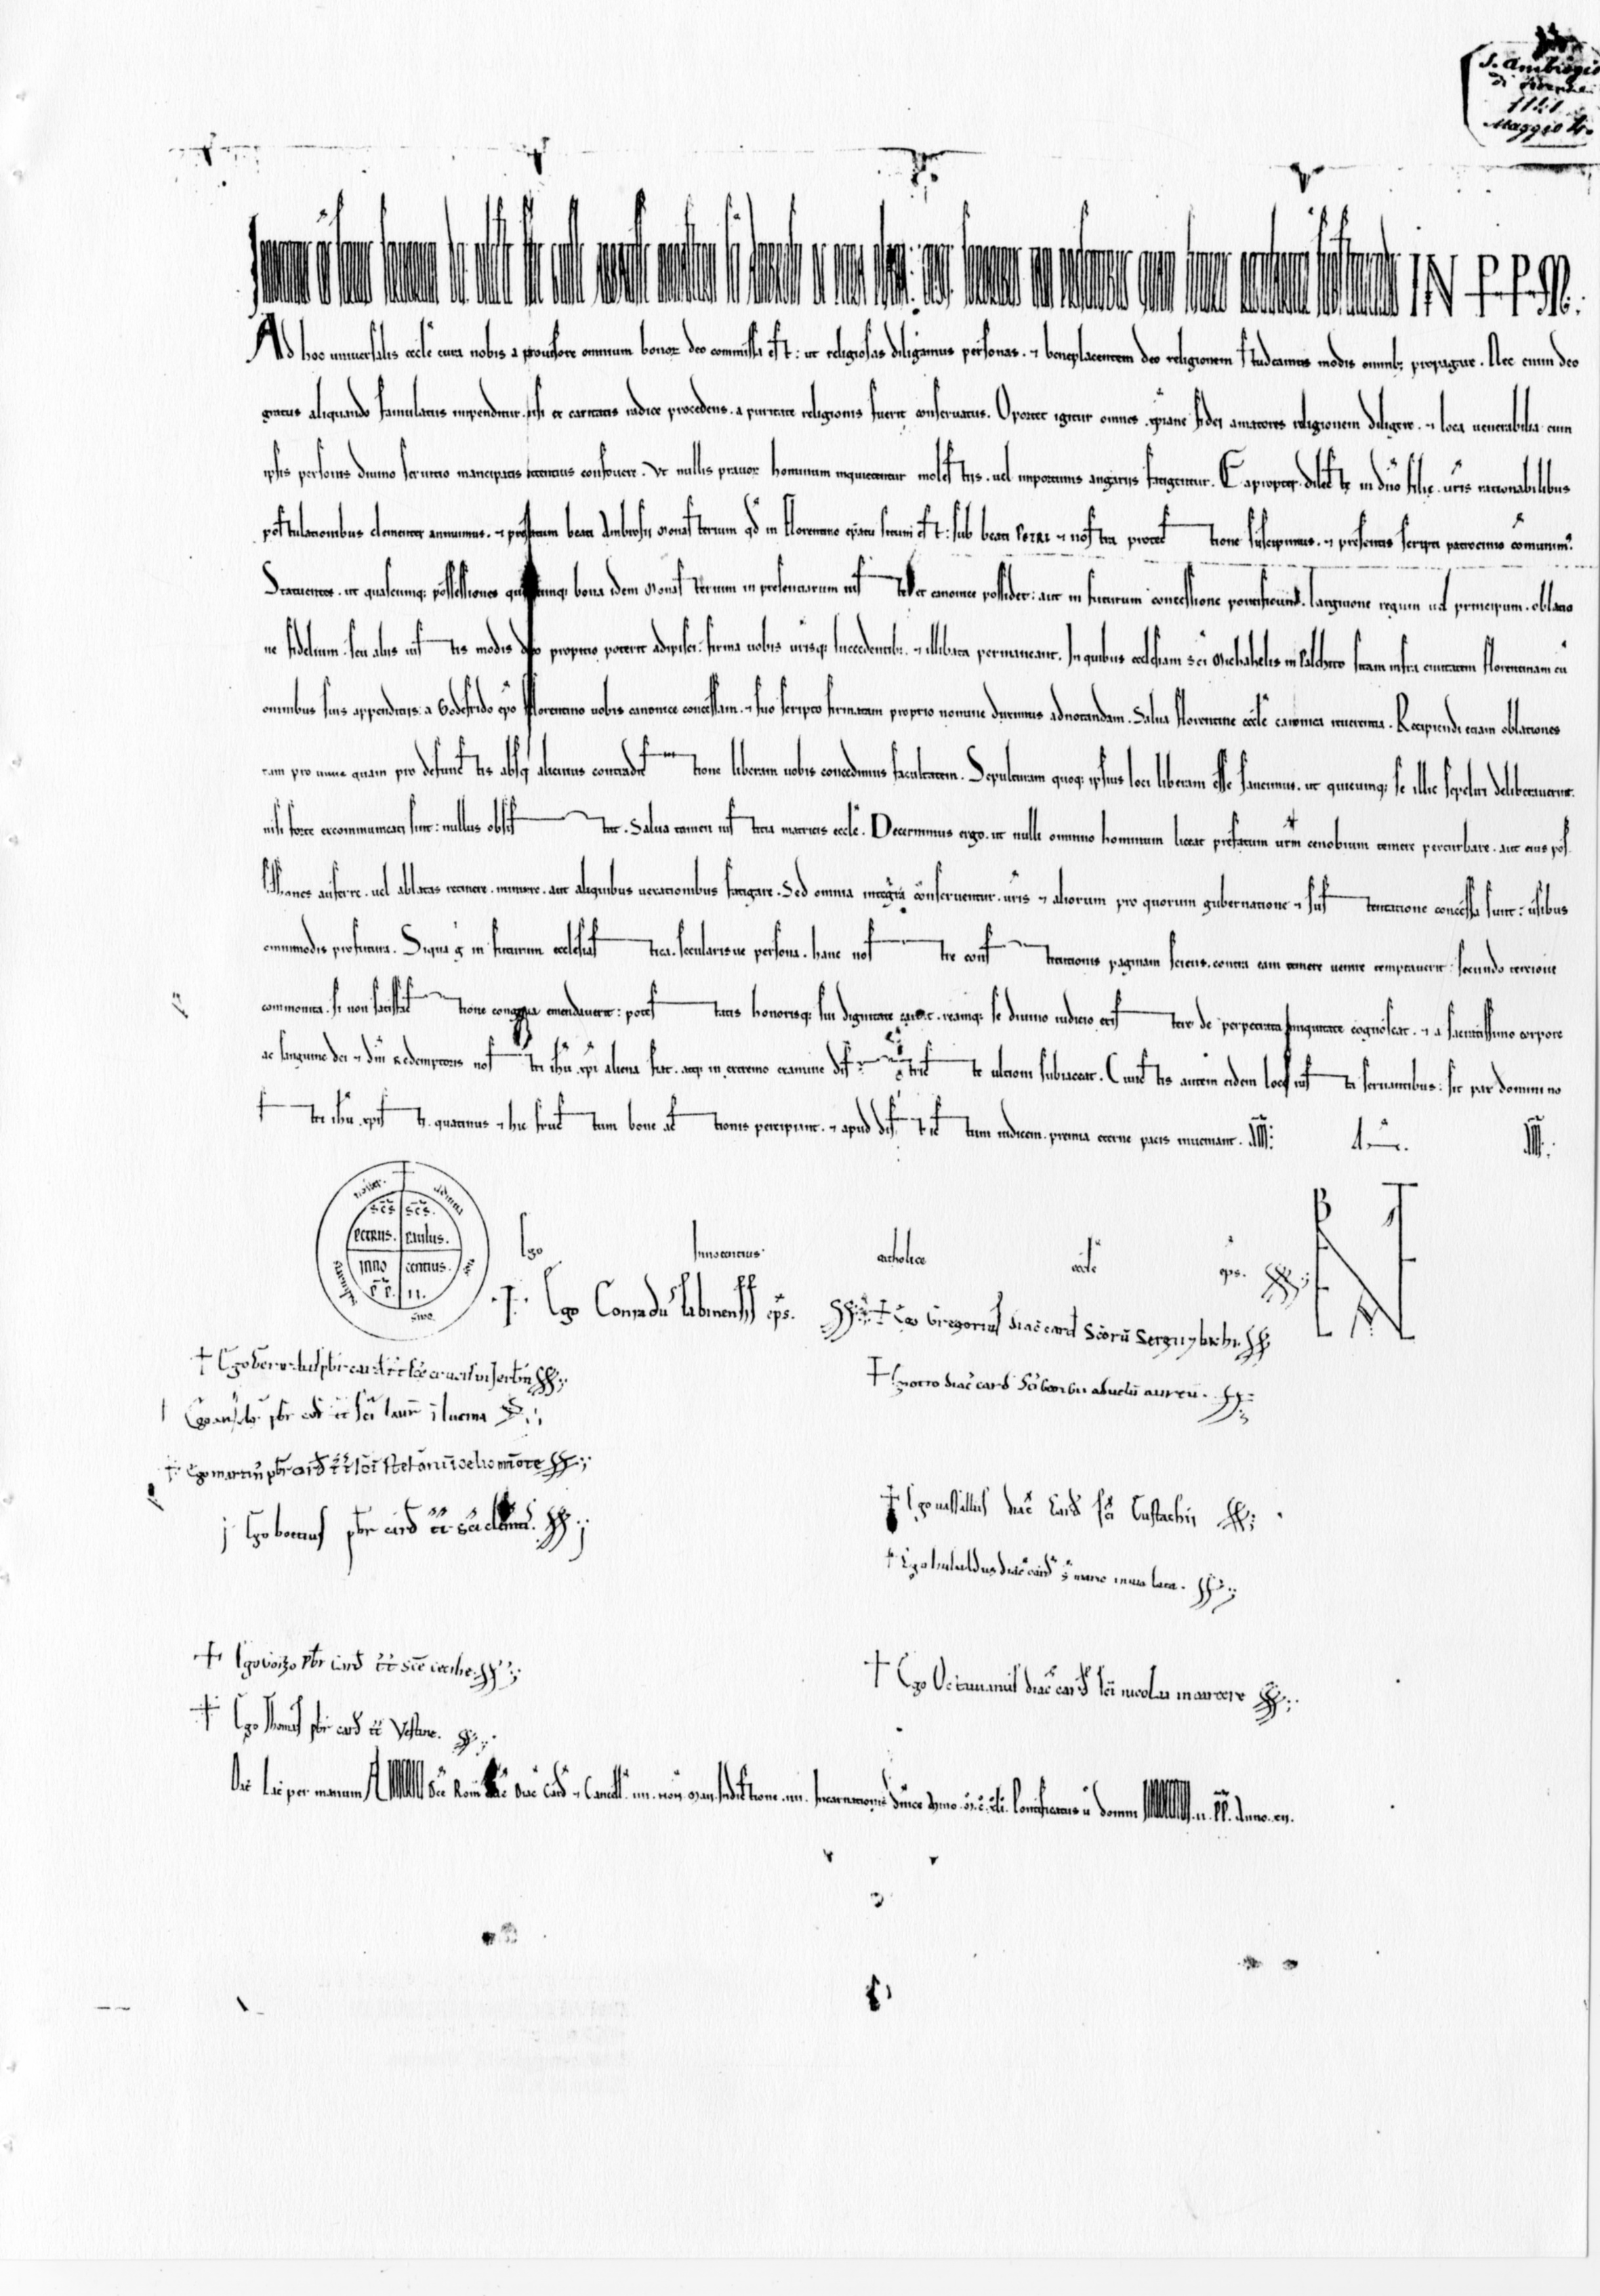 S. Ambrogio
di Firenze
1141
Maggio 4.
IN PPM.
Ad hoc universalis eccłe cura nobis a provisore omnium bonoꝝ deo commissa est: ut religiosas diligamus personas. ⁊ beneplacentem deo religionem studeamus modis omnibꝫ propagare. Nec enim deo
gratus aliquando famulatus impenditur. nisi ex caritatis radice procedens. a puritate religionis fuerit conservatus. Oportet igitur omnes xp̄iane fidei amatores religionem diligere. ⁊ loca venerabilia cum
ipsis personis divino servitio mancipatis attentius confovere. Ut nullis pravoꝝ hominum inquietentur molestiis. vel importunis angariis fatigentur. Eapropter dilecte in dn̄o filie. vr̄is rationabilibus
postulationibus clementer annuimus. ⁊ prefatum beati Ambrosii monasterium qđ in Florentino ep̄atu situm est: sub beati PETRI ⁊ nostra protectione suscipimus. ⁊ presentis scripti patrocinio com̄unim᷒.
Statuentes. ut quascumqꝫ possessiones quecumqꝫ bona idem monasterium in presentiarum iuste et canonice possidet: aut in futurum concessione pontificum. largitione regum vel principum. oblatio
ne fidelium. seu aliis iustis modis deo propitio poterit adipisci: firma vobis vr̄isqꝫ succedentibꝫ. ⁊ illibata permaneant. In quibus ecclesiam sc̄i Michahelis in Palcheto sitam infra civitatem Florentinam cū
omnibus suis appenditiis a Godefrido ep̄o Florentino vobis canonice concessam. ⁊ suo scripto firmatam proprio nomine duximus adnotandam. Salva Florentine eccłe canonica reverentia. Recipiendi etiam oblationes
tam pro vivis quam pro defunctis absqꝫ alicuius contradictione liberam vobis concedimus facultatem. Sepulturam quoqꝫ ipsius loci liberam esse sancimus. ut quicumqꝫ se illic sepeliri deliberaverint.
nisi forte excommunicati sint: nullus obsistat. Salva tamen iustitia matricis eccłe. Decernimus ergo. ut nulli omnino hominum liceat prefatum vr̄m cenobium temere perturbare. aut eius pos
sessiones auferre. vel ablatas retinere. minuere. aut aliquibus vexationibus fatigare. Sed omnia integra conserventur. vr̄is ⁊ aliorum pro quorum gubernatione ⁊ sustentatione concessa sunt: usibus
omnimodis profutura. Siqua g̊ in futurum ecclesiastica. secularisve persona. hanc nostre constitutionis paginam sciens. contra eam temere venire temptaverit: secundo tertiove
commonita. si non satisfactione congrua emendaverit: potestatis honorisqꝫ sui dignitate careat. reamqꝫ se divino iudicio existere de perpetrata iniquitate cognoscat. ⁊ a sacratissimo corpore
ac sanguine dei ⁊ dn̄i Redemptoris nostri ih̄u xp̄i aliena fiat. atqꝫ in extremo examine districte ultioni subiaceat. Cunctis autem eidem loco iusta servantibus: sit pax domini no
stri ih̄u xp̄isti. quatinus ⁊ hic fructum bone actionis percipiant. ⁊ apud districtum iudicem premia eterne pacis inveniant. AM̄: A. AM̄:
SC̄S PETRUS. SC̄S PAULUS. INNOCENTIUS. P̄P̄. II.
Ego Innocentius catholice eccłe ep̄s.
✝ Ego Conradus Sabinensis ep̄s.
✝ Ego Gregorius diac̄ card̄ Sc̄orū Sergii ⁊ bachi.
✝ Ego Otto diac̄ card̄ Sc̄i Georgii ad velū aureū.
Ego anselm᷒ pb̄r card̄ tt̄ sc̄i laur̄ ī lucina
✝ Ego martin᷒ pb̄r card̄ tt̄ sc̄i Stefani ī celio m̄ote
✝ Ego vassallus diac̄ Card̄ sc̄i Eustachii
Ego boetius pb̄r card̄ tt̄ sc̄i clem̄tis
✝ Ego hubaldus diac̄ card̄ s̄ marie in via lata.
✝ Ego Goizo pb̄r Card̄ tt̄ sc̄e cecilie
✝ Ego Octavianus diac̄ card̄ sc̄i nicolai in carcere
✝ Ego Thomas pb̄r card̄ tt̄ Vestine.
Dat̄ Lat̄ per manum Sc̄e Rom̄ Eccłe Diac̄ Card̄ ⁊ Cancell̄. IIII. non̄ Maii. Indictione. IIII. Incarnationis dn̄ice Anno. M̊.C̊.XLI. Pontificatus v̊ domni INNOCENTII. II. P̄P̄. Anno. XII.